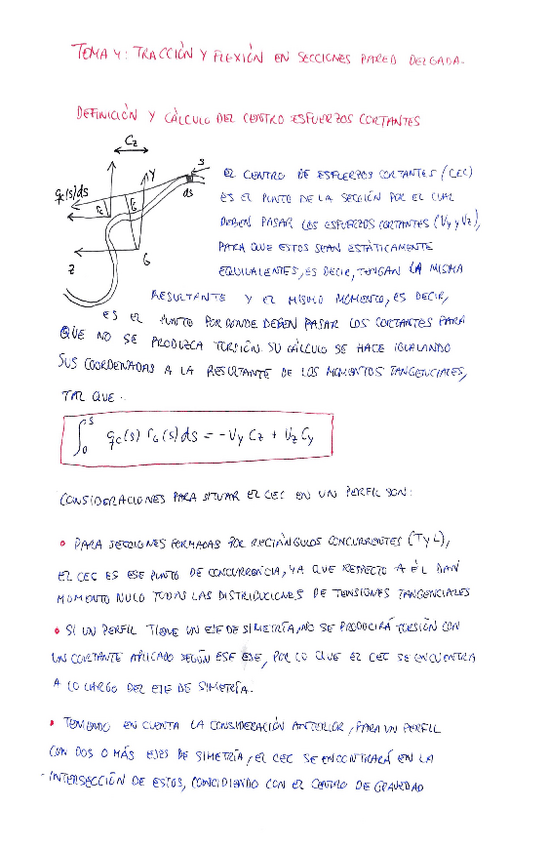 TEMA 4: TRACCIÓN Y FLEXIÓN EN SECCIONES PARED DELGADA.
DEFINICIÓN Y CÁLCULO DEL CENTRO ESFUERZOS CORTANTES
Cz
s
Y
qc(s)ds
ds
rc
z
G
EL CENTRO DE ESFUERZOS CORTANTES (CEC)
ES EL PUNTO DE LA SECCIÓN POR EL CUAL
DEBEN PASAR LOS ESFUERZOS CORTANTES (Vy y Vz),
PARA QUE ESTOS SEAN ESTÁTICAMENTE
EQUIVALENTES, ES DECIR, TENGAN LA MISMA
RESULTANTE Y EL MISMO MOMENTO, ES DECIR,
ES EL PUNTO POR DONDE DEBEN PASAR LOS CORTANTES PARA
QUE NO SE PRODUZCA TORSIÓN. SU CÁLCULO SE HACE IGUALANDO
SUS COORDENADAS A LA RESULTANTE DE LOS MOMENTOS TANGENCIALES,
TAL QUE:
∫₀ˢ qc(s) rG(s) ds = -Vy Cz + Vz Cy
CONSIDERACIONES PARA SITUAR EL CEC EN UN PERFIL SON:
• PARA SECCIONES FORMADAS POR RECTÁNGULOS CONCURRENTES (T y L),
EL CEC ES ESE PUNTO DE CONCURRENCIA, YA QUE RESPECTO A ÉL DAN
MOMENTO NULO TODAS LAS DISTRIBUCIONES DE TENSIONES TANGENCIALES
• SI UN PERFIL TIENE UN EJE DE SIMETRÍA, NO SE PRODUCIRÁ TORSIÓN CON
UN CORTANTE APLICADO SEGÚN ESE EJE, POR LO QUE EL CEC SE ENCUENTRA
A LO LARGO DEL EJE DE SIMETRÍA.
• TENIENDO EN CUENTA LA CONSIDERACIÓN ANTERIOR, PARA UN PERFIL
CON DOS O MÁS EJES DE SIMETRÍA, EL CEC SE ENCONTRARÁ EN LA
INTERSECCIÓN DE ESTOS, COINCIDIENDO CON EL CENTRO DE GRAVEDAD